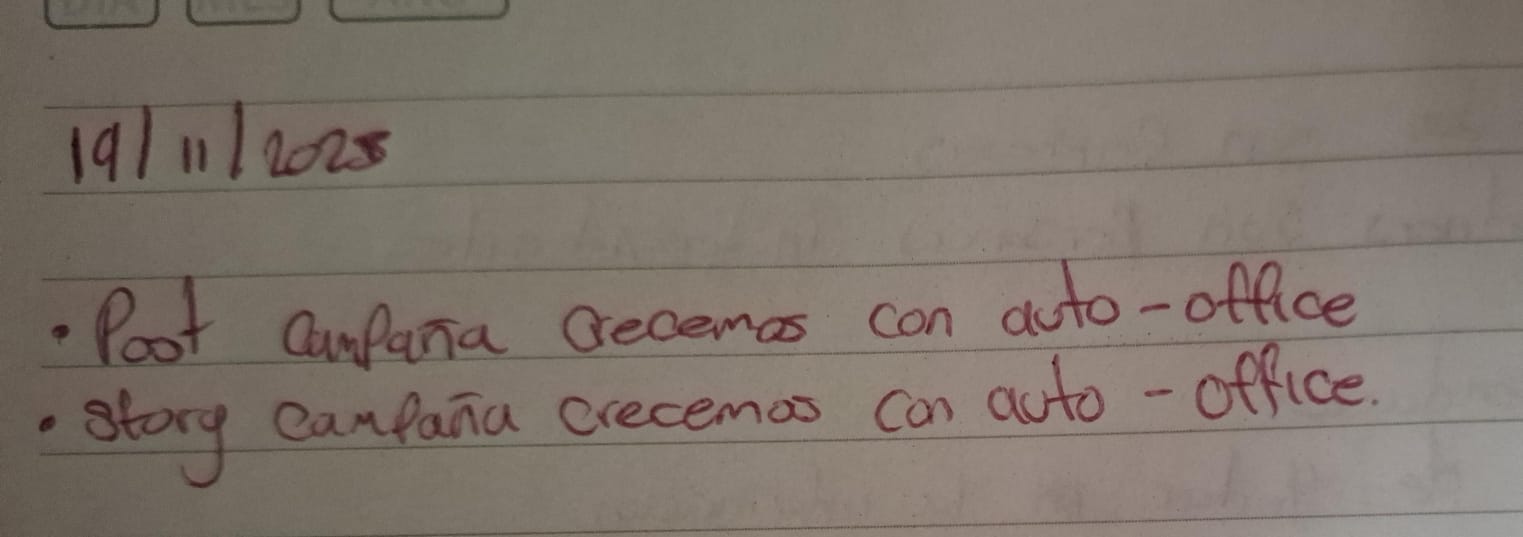 DIA MES AÑO
19/11/2025
• Post campaña crecemos con auto-office
• Story campaña crecemos con auto-office.